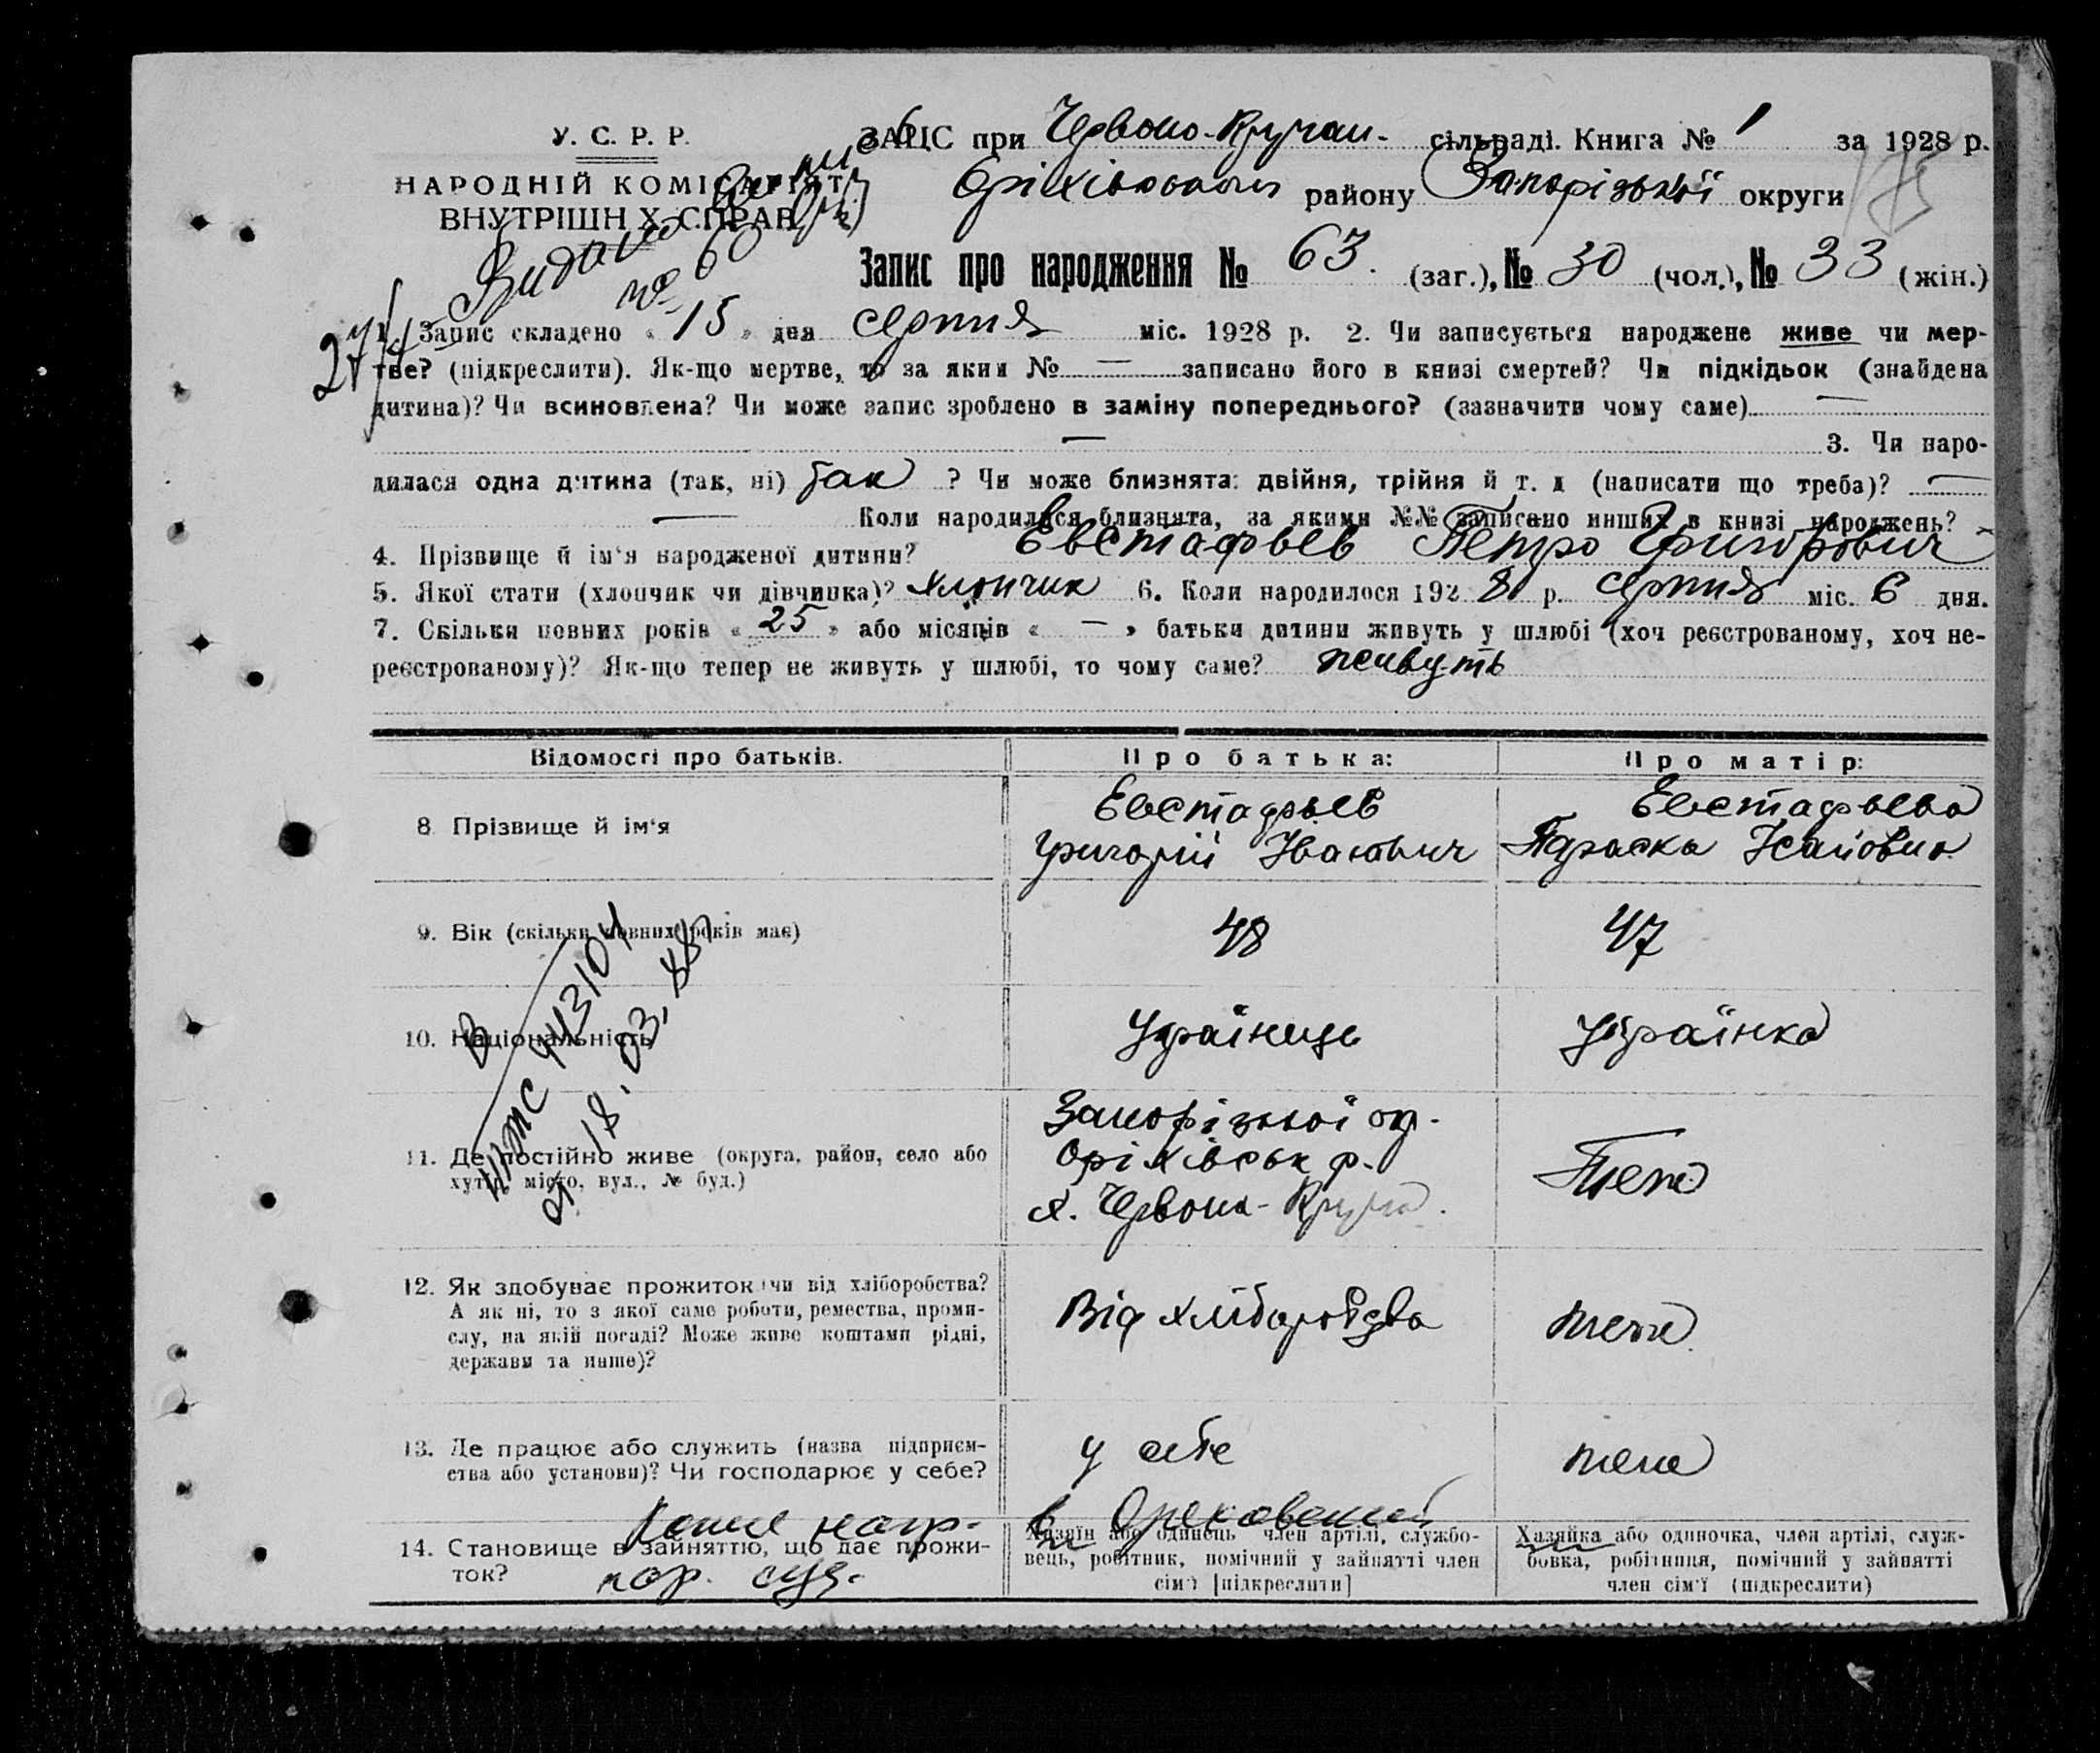 У. С. Р. Р.
НАРОДНІЙ КОМІСАРІЯТ
ВНУТРІШН Х СПРАВ
ЗАГС при Червоно-Кручан. сільраді. Книга № 1 за 1928 р.
Оріхівського району Запорізької округи
175
Видано
№ 60
Запис про народження № 63. (заг.), № 30 (чол.), № 33 (жін.)
27
1. Запис складено « 15 » дня серпня міс. 1928 р. 2. Чи записується народжене живе чи мер-
тве? (підкреслити). Як-що мертве, то за яким № — записано його в книзі смертей? Чи підкідьок (знайдена
дитина)? Чи всиновлена? Чи може запис зроблено в заміну попереднього? (зазначити чому саме) —
— 3. Чи наро-
дилася одна дитина (так, ні) так ? Чи може близнята: двійня, трійня й т. д (написати що треба)? —
— Коли народилися близнята, за якими №№ записано инших в книзі народжень? —
4. Прізвище й ім'я народженої дитини? Евстафьев Петро Григорович
5. Якої стати (хлопчик чи дівчинка)? хлопчик 6. Коли народилося 1928 р. серпня міс. 6 дня.
7. Скільки повних років « 25 » або місяців « — » батьки дитини живуть у шлюбі (хоч реєстрованому, хоч не-
реєстрованому)? Як-що тепер не живуть у шлюбі, то чому саме? живуть
Відомості про батьків.
Про батька:
Про матір:
8. Прізвище й ім'я
Евстафьев
Григорій Іванович
Евстафьева
Параска Ісаївна
9. Вік (скільки повних років має)
48
47
10. Національність
Українець
Українка
443104
18.03.88
11. Де постійно живе (округа, район, село або
хутір, місто, вул., № буд.)
Запорізької ок.
Оріхівськ р.
х. Червона-Круча.
Теж
12. Як здобуває прожиток чи від хліборобства?
А як ні, то з якої саме роботи, ремества, проми-
слу, на якій посаді? Може живе коштами рідні,
держави та инше)?
Від хліборобства
теж
13. Де працює або служить (назва підприєм-
ства або установи)? Чи господарює у себе?
у себе
теж
Копие напр.
в Ореховский
нар. суд.
14. Становище в зайняттю, що дає прожи-
ток?
Хазяїн або одинець член артілі, службо-
вець, робітник, помічний у зайнятті член
сім'ї [підкреслити]
Хазяйка або одиночка, член артілі, служ-
бовка, робітниця, помічний у зайнятті
член сім'ї (підкреслити)